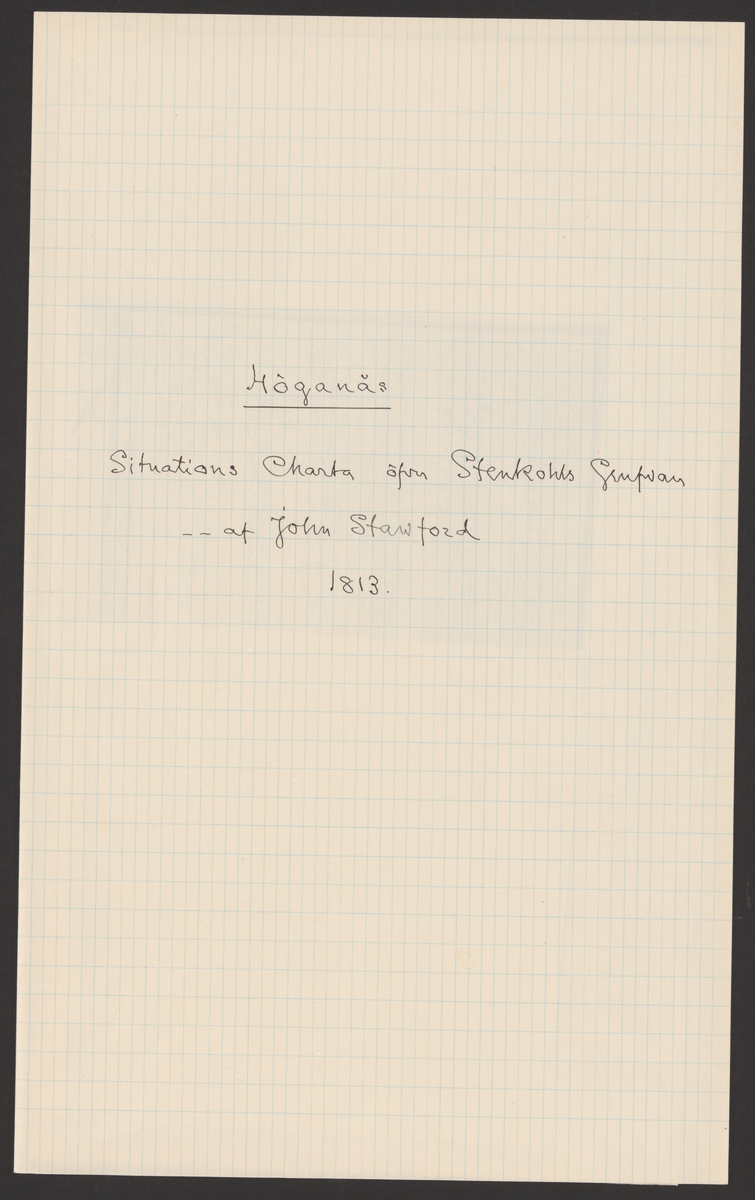 Höganäs
Situations Charta öfvr Stenkohls Grufvan
-- af John Stawford
1813.